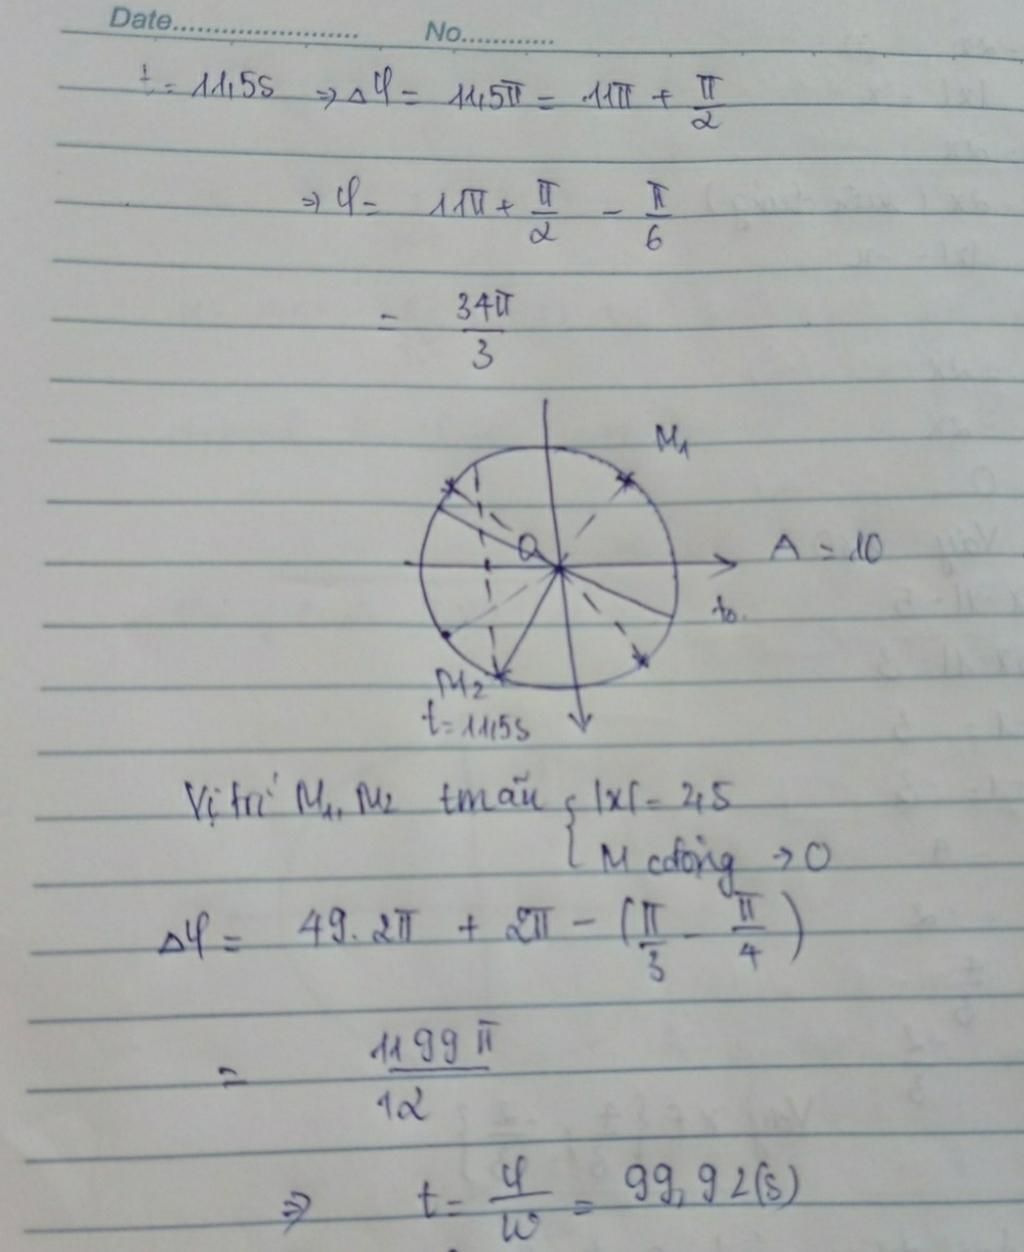 Date........................ No............
t = 11,5s ⇒ Δφ = 11,5π = 11π + π/2
⇒ φ = 11π + π/2 - π/6
= 34π/3
M1
O
A = 10
t0.
M2
t = 11,5s
Vị trí M1, M2 tmãn { |x| = 2,5
M cđộng → O
Δφ = 49. 2π + 2π - (π/3 - π/4)
= 1199π/12
⇒ t = φ/w = 99,92(s)